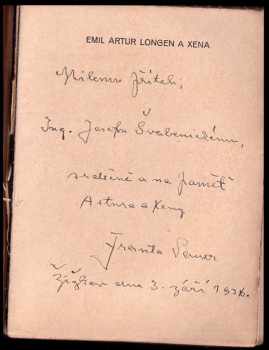 EMIL ARTUR LONGEN A XENA
Milému příteli,
Ing. Josefu Švabenickému,
srdečně a na paměť
Artura a Xeny
Franta Sauer
Žižkov dne 3. září 1936.